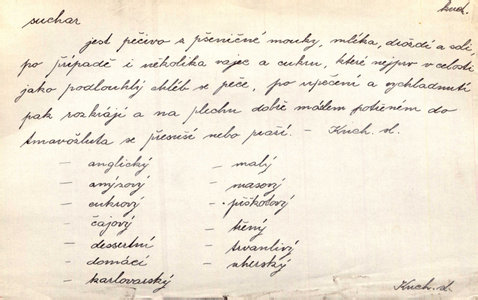 kuch.
suchar
jest pečivo z pšeničné mouky, mléka, droždí a soli,
po případě i několika vajec a cukru, které nejprv v celosti
jako podlouhlý chléb se peče, po upečení a vychladnutí
pak rozkrájí a na plechu dobře máslem potřeném do
tmavožluta se přesuší nebo praží. – Kuch. sl.
– anglický – malý
– anýzový – masový
– cukrový – piškotový
– čajový – těný
– dessertní – trvanlivý
– domácí – uherský
– karlovarský
Kuch. sl.